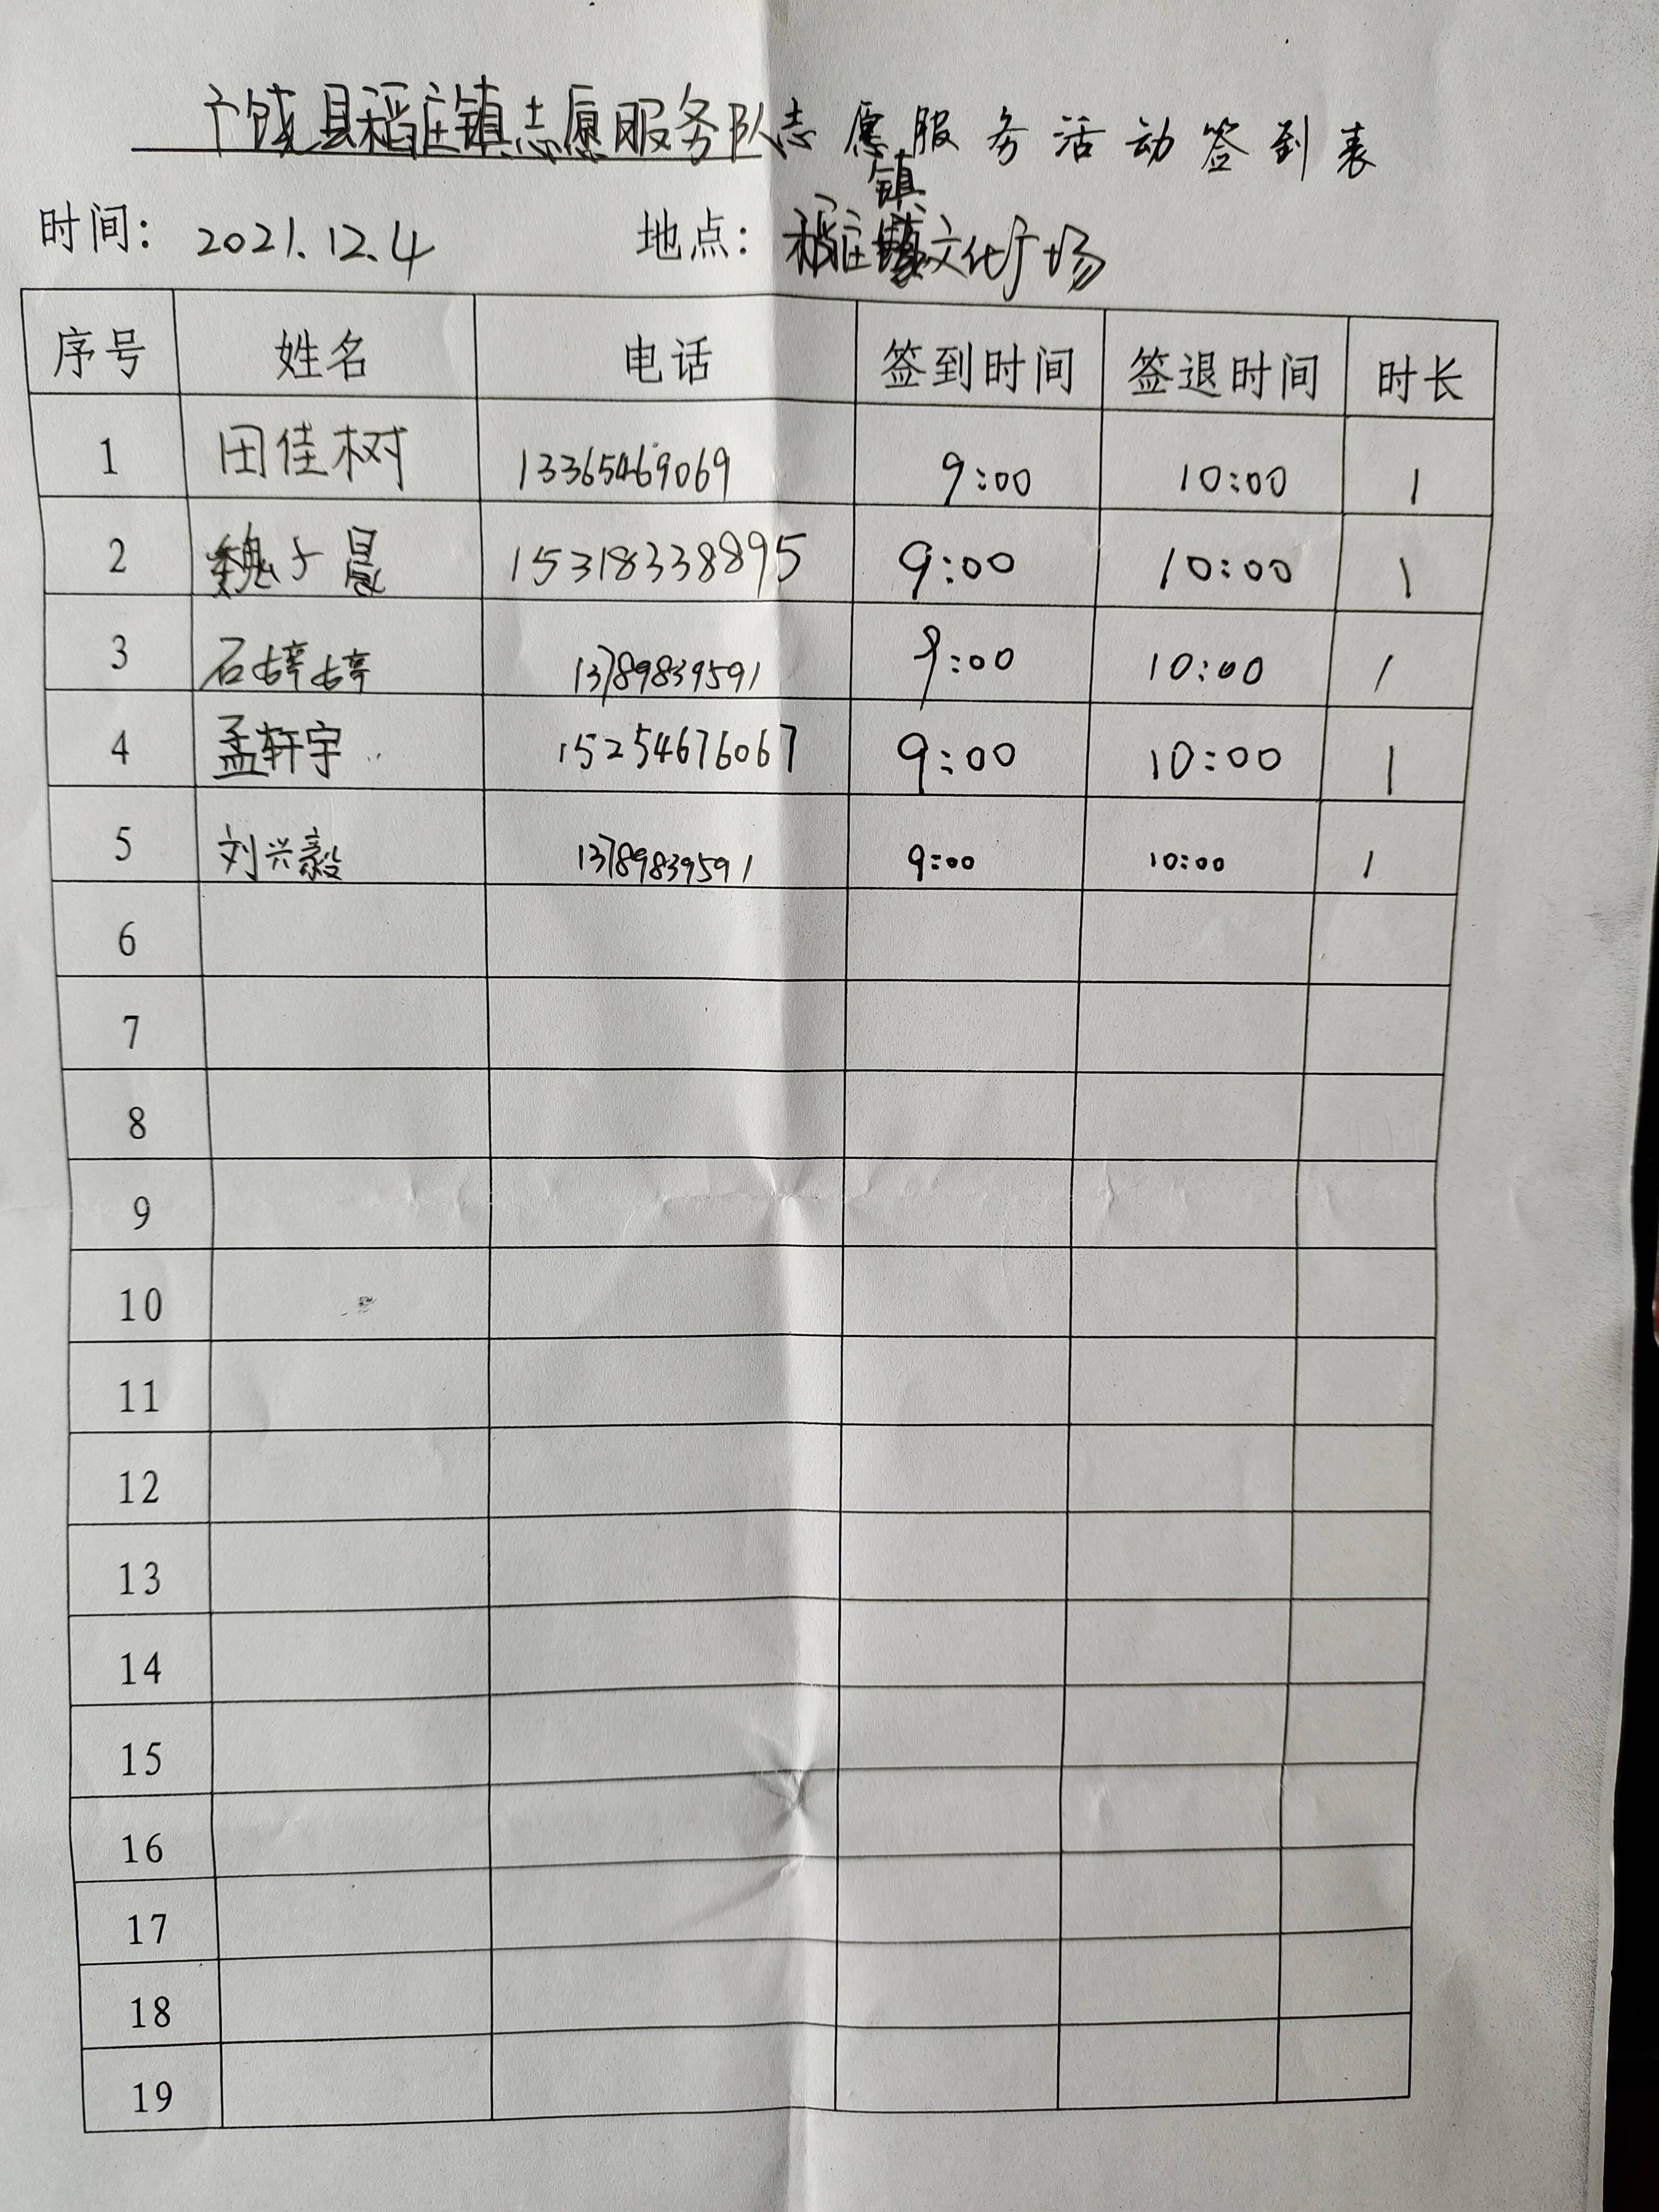 广饶县稻庄镇志愿服务队志愿服务活动签到表
时间：2021.12.4 地点：稻庄镇文化广场
序号 姓名 电话 签到时间 签退时间 时长
1 田佳树 13365469069 9:00 10:00 1
2 魏子晨 15318338895 9:00 10:00 1
3 石婷婷 13789839591 9:00 10:00 1
4 孟轩宇 15254676067 9:00 10:00 1
5 刘兴毅 13789839591 9:00 10:00 1
6
7
8
9
10
11
12
13
14
15
16
17
18
19